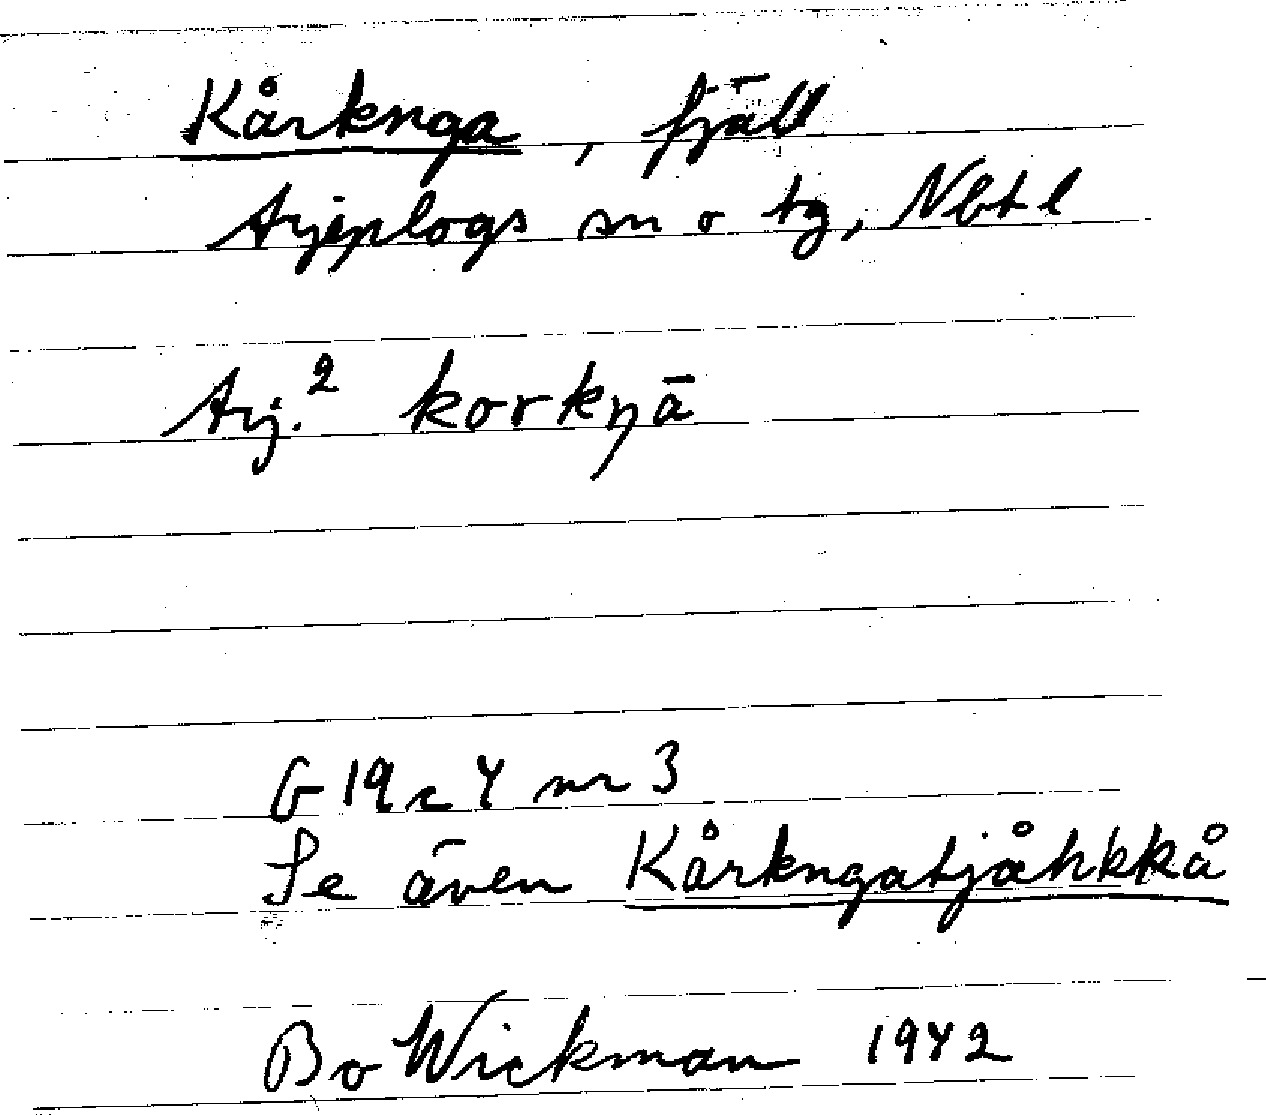 Kårknga, fjäll
Arjeplogs sn o tg, Nbt l
Arj.² korkŋā
G 19 c 4 nr 3
Se även Kårkngatjåhkkå
Bo Wickman 1942